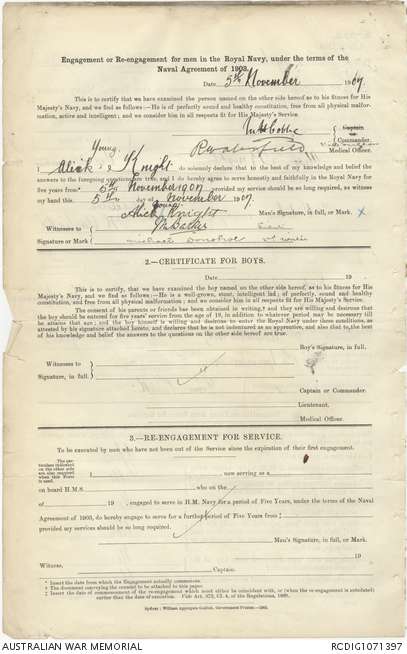 Engagement or Re-engagement for men in the Royal Navy, under the terms of the
Naval Agreement of 1903.
Date 5th November 1907
This is to certify that we have examined the person named on the other side hereof as to his fitness for His
Majesty's Navy, and we find as follows:—He is of perfectly sound and healthy constitution, free from all physical malfor-
mation, active and intelligent; and we consider him in all respects fit for His Majesty's Service
Captain or
Commander.
Medical Officer.
Young.
I Alick Knight do solemnly declare that to the best of my knowledge and belief the
answers to the foregoing questions are true, and I do hereby agree to serve honestly and faithfully in the Royal Navy for
five years from * 5th November 1907 provided my service should be so long required, as witness
my hand this 5th day of November 1907.
Alick Knight Man's Signature, in full, or Mark. x
Witnesses to
Signature or Mark
2.—CERTIFICATE FOR BOYS.
Date 19 .
This is to certify that we have examined the boy named on the other side hereof, as to his fitness for His
Majesty's Navy, and we find as follows:—He is a well-grown, stout, intelligent lad; of perfectly, sound and healthy
constitution, and free from all physical malformation; and we consider him in all respects fit for His Majesty's Service.
The consent of his parents or friends has been obtained in writing,† and they are willing and desirous that
the boy should be entered for five years' service from the age of 18, in addition to whatever period may be necessary till
he attains that age; and the boy himself is willing and desirous to enter the Royal Navy under these conditions, as
attested by his signature attached hereto, and declares that he is not indentured as an apprentice, and also that to the best
of his knowledge and belief the answers to the questions on the other side hereof are true.
Boy's Signature, in full.
Witnesses to
Signature, in full.
Captain or Commander.
Lieutenant.
Medical Officer.
3.—RE-ENGAGEMENT FOR SERVICE.
To be executed by men who have not been out of the Service since the expiration of their first engagement.
The par-
ticulars indicated
on the other side
are also required
when this Form
is used.
I , now serving as a
on board H.M.S. who on the
of 19 , engaged to serve in H.M. Navy for a period of Five Years, under the terms of the Naval
Agreement of 1903, do hereby engage to serve for a further period of Five Years from ‡
provided my services should be so long required.
Man's Signature, in full, or Mark.
19
Witness,
Captain
* Insert the date from which the Engagement actually commences.
† The document conveying the consent to be attached to this paper.
‡ Insert date of commencement of the re-engagement which must either be coincident with, or (when the re-engagement is antedated)
earlier than the date of execution.
Sydney: William Applegate Gullick, Government Printer.
AUSTRALIAN WAR MEMORIAL
RCDIG1071397